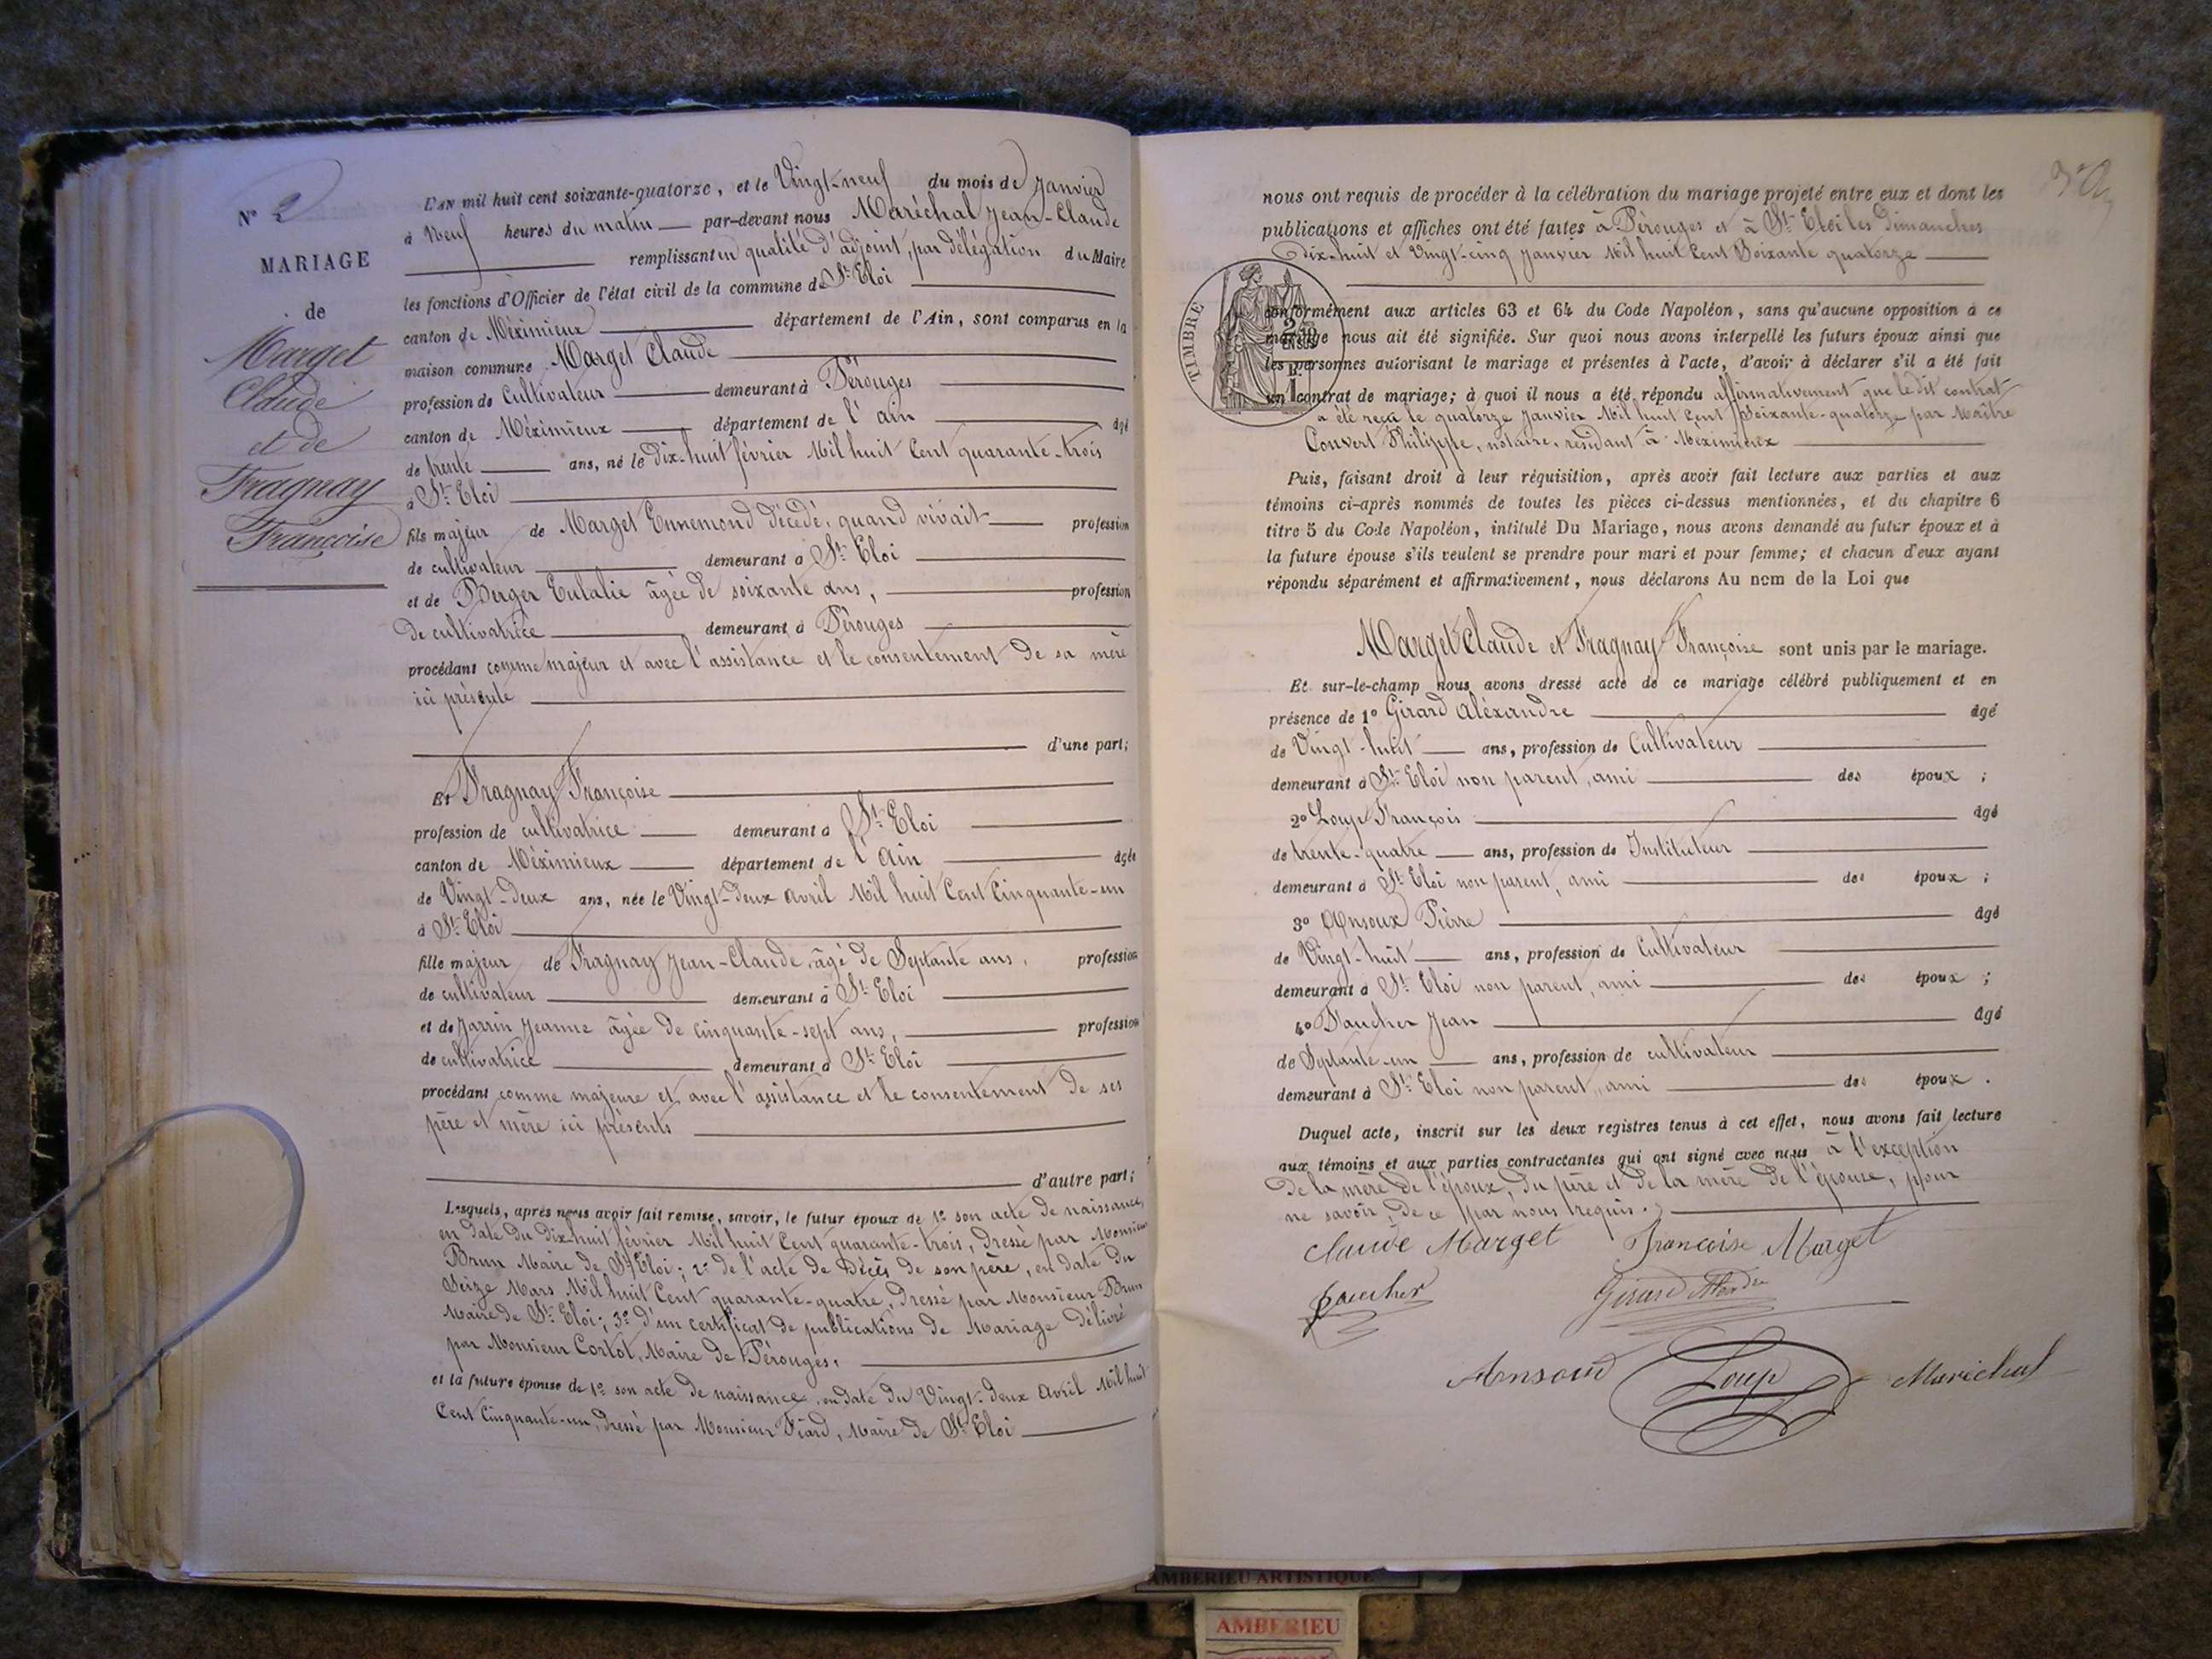 N° 2
MARIAGE
de
Marget
Claude
et de
Fragnay
Françoise
L'AN mil huit cent soixante-quatorze, et le Vingt-neuf du mois de Janvier
à Neuf heures du matin par-devant nous Maréchal Jean-Claude
remplissant en qualité d'adjoint, par délégation du Maire
les fonctions d'Officier de l'état civil de la commune de St. Eloi
canton de Méximieux département de l'Ain, sont comparus en la
maison commune Marget Claude
profession de Cultivateur demeurant à Pérouges
canton de Méximieux département de l'ain âgé
de trente ans, né le Dix-huit février Mil huit Cent quarante-trois
à St. Eloi
fils majeur de Marget Ennemond décédé, quand vivait profession
de cultivateur demeurant à St. Eloi
et de Berger Eulalie âgée de soixante ans, profession
De cultivatrice demeurant à Pérouges
procédant comme majeur et avec l'assistance et le consentement de sa mère
ici présente
d'une part;
Et Fragnay Françoise
profession de cultivatrice demeurant à St. Eloi
canton de Méximieux département de l'ain âgée
de Vingt-deux ans, née le Vingt-deux avril Mil huit Cent Cinquante-un
à St. Eloi
fille majeur de Fragnay Jean-Claude, âgé de Septante ans, profession
de cultivateur demeurant à St. Eloi
et de Jarrin Jeanne âgée de cinquante-sept ans, profession
de cultivatrice demeurant à St. Eloi
procédant comme majeure et avec l'assistance et le consentement de ses
père et mère ici présents
d'autre part;
Lesquels, après nous avoir fait remise, savoir, le futur époux de 1° son acte de naissance,
en date du dix-huit février Mil huit Cent quarante-trois, dressé par Monsieur
Brun Maire de St. Eloi; 2° de l'acte de Décès de son père, en date du
Seize Mars Mil huit Cent quarante-quatre, dressé par Monsieur Brun
Maire de St. Eloi; 3° d'un certificat de publications de Mariage délivré
par Monsieur Cortot, Maire de Pérouges,
et la future épouse de 1° son acte de naissance, en date du Vingt-deux Avril Mil huit
Cent Cinquante-un, dressé par Monsieur Fiard, Maire de St. Eloi
nous ont requis de procéder à la célébration du mariage projeté entre eux et dont les
publications et affiches ont été faites à Pérouges et à St. Eloi les dimanches
dix-huit et Vingt-cinq janvier Mil huit Cent Soixante quatorze
TIMBRE
conformément aux articles 63 et 64 du Code Napoléon, sans qu'aucune opposition à ce
mariage nous ait été signifiée. Sur quoi nous avons interpellé les futurs époux ainsi que
les personnes autorisant le mariage et présentes à l'acte, d'avoir à déclarer s'il a été fait
un contrat de mariage; à quoi il nous a été répondu affirmativement que le dit contrat
a été reçu le quatorze Janvier Mil huit Cent Soixante-quatorze par Maître
Convert Philippe, notaire, résidant à Meximieux
Puis, faisant droit à leur réquisition, après avoir fait lecture aux parties et aux
témoins ci-après nommés de toutes les pièces ci-dessus mentionnées, et du chapitre 6
titre 5 du Code Napoléon, intitulé Du Mariage, nous avons demandé au futur époux et à
la future épouse s'ils veulent se prendre pour mari et pour femme; et chacun d'eux ayant
répondu séparément et affirmativement, nous déclarons Au nom de la Loi que
Marget Claude et Fragnay Françoise sont unis par le mariage.
Et sur-le-champ nous avons dressé acte de ce mariage célébré publiquement et en
présence de 1° Girard Aléxandre âgé
de Vingt-huit ans, profession de Cultivateur
demeurant à St. Eloi non parent, ami des époux ;
2° Loup François âgé
de trente-quatre ans, profession de Instituteur
demeurant à St. Eloi non parent, ami des époux ;
3° Ansoux Pierre âgé
de Vingt-huit ans, profession de Cultivateur
demeurant à St. Eloi non parent, ami des époux ;
4° Faucher Jean âgé
de Septante-un ans, profession de cultivateur
demeurant à St. Eloi non parent, ami des époux .
Duquel acte, inscrit sur les deux registres tenus à cet effet, nous avons fait lecture
aux témoins et aux parties contractantes qui ont signé avec nous à l'exception
De la mère de l'époux, du père et de la mère de l'épouse, pour
ne savoir, de ce par nous requis.
Claude Marget Francoise Marget
faucher Girard
Ansoud Loup Maréchal
AMBERIEU ARTISTIQUE
AMBERIEU